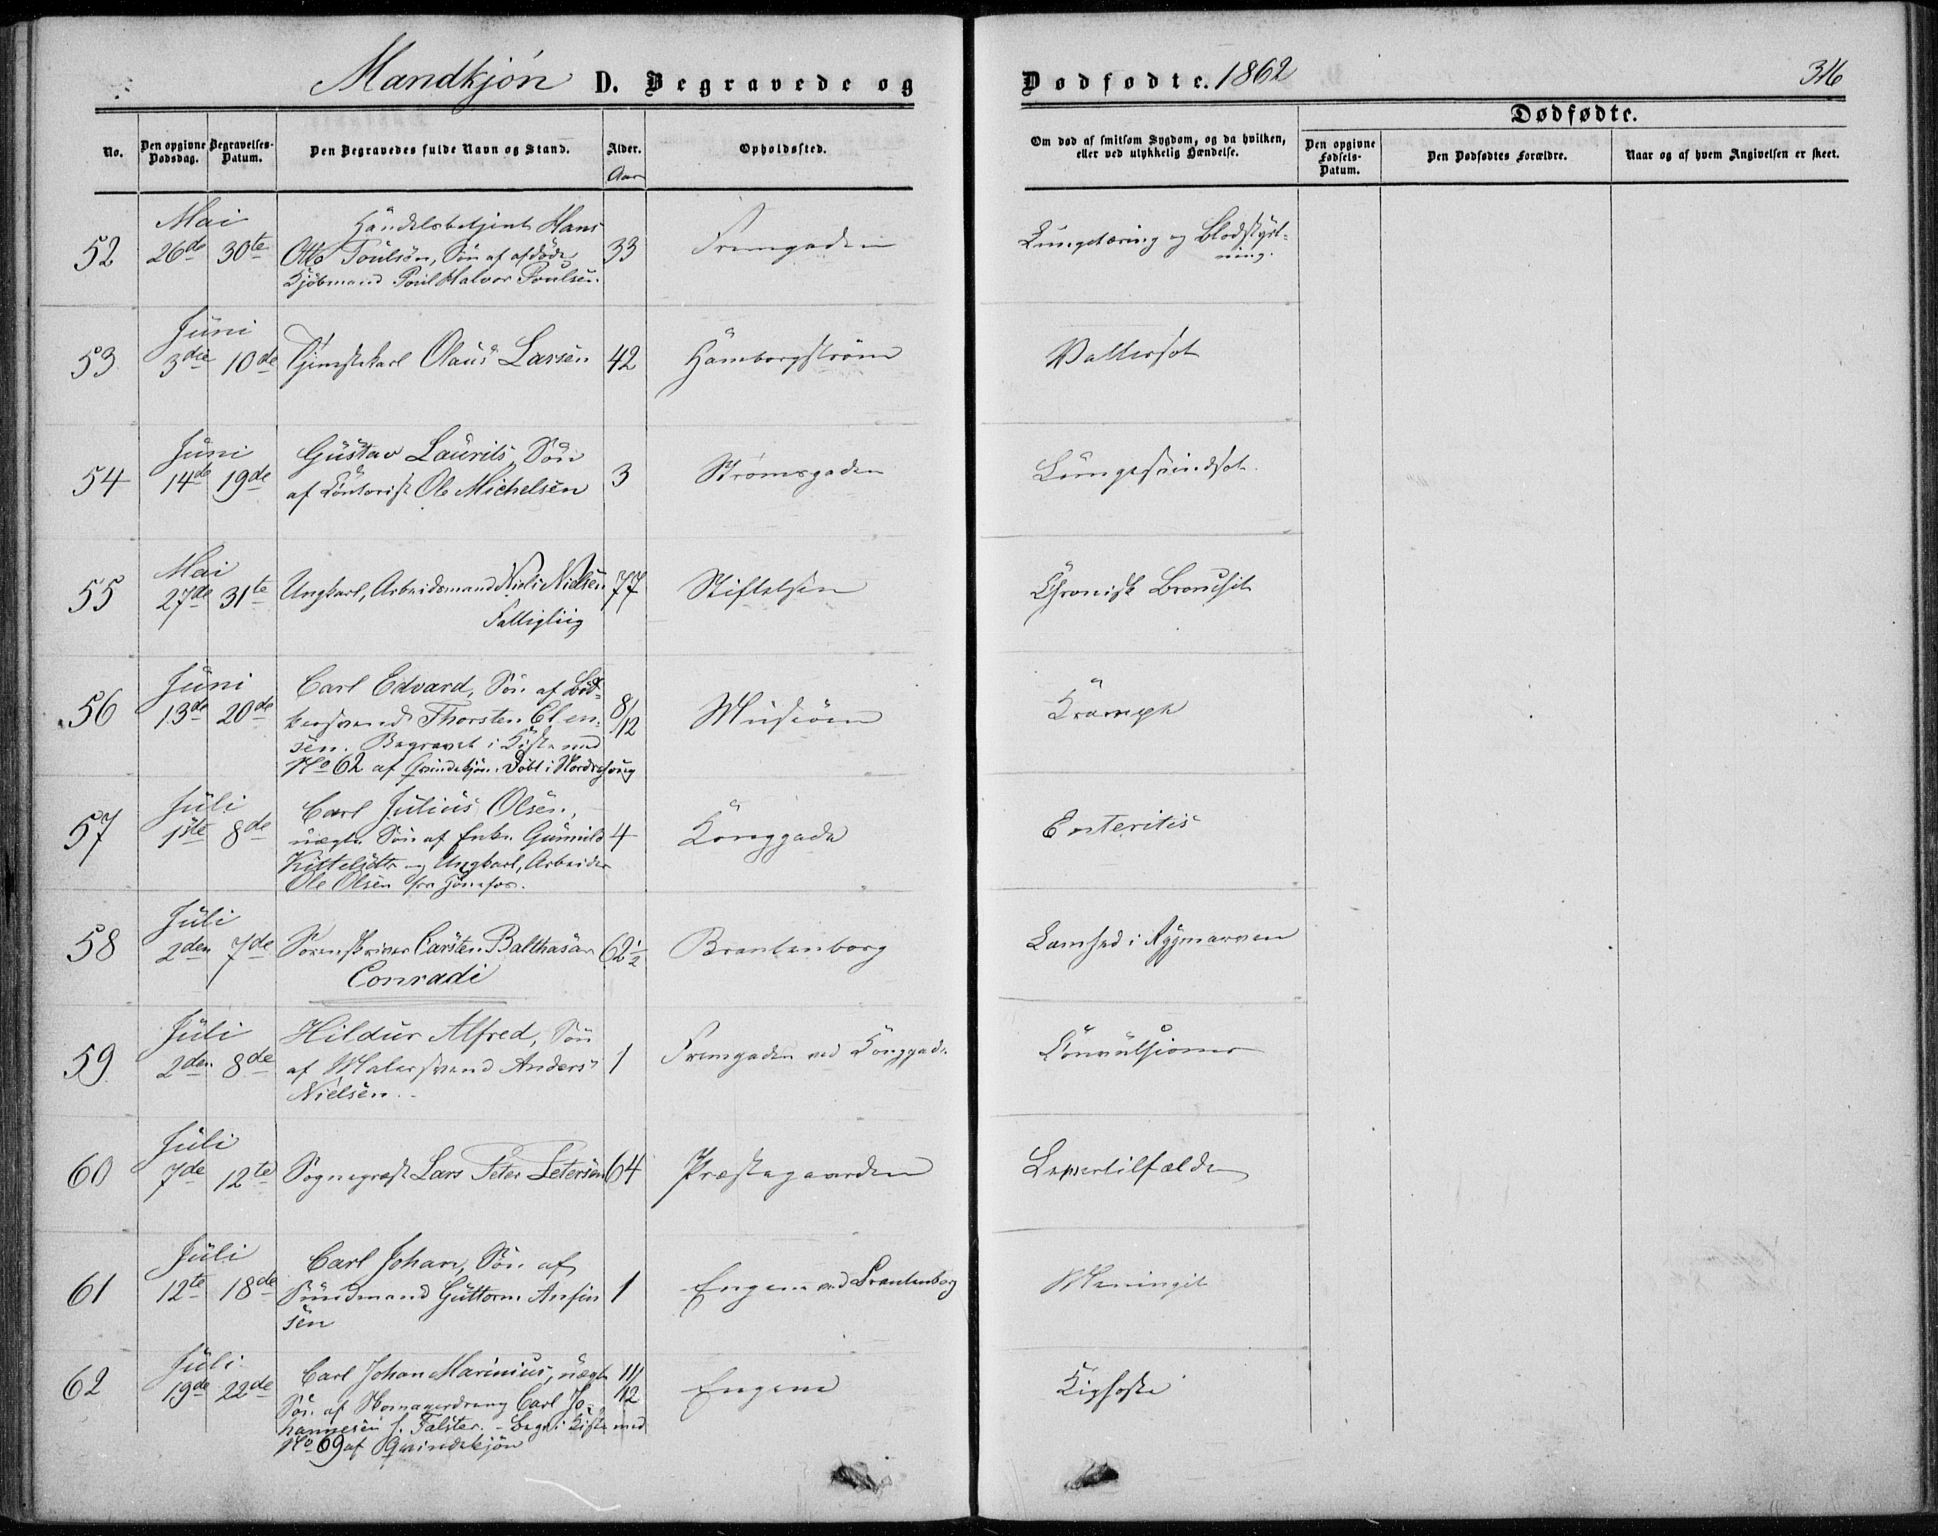 Mandkjøn D. Begravede og Dødfødte. 1862 316
No. Den opgivne Dødsdag. Begravelses-Datum. Den Begravedes fulde Navn og Stand. Alder. Opholdssted. Om død af smitsom Sygdom, og da hvilken, eller ved ulykkelig Hændelse.
Dødfødte.
Den opgivne Fødsels-Datum. Den Dødfødtes Forældre. Naar og af hvem Angivelsen er skeet.
Aar
52 Mai 26de 30te Handelsbetjent Hans
Otto Poulsen, Søn af afdøde
Kjøbmand Poul Halvor Poulsen. 33 Lungetæring og Blodstyrt-
ning.
53 Juni 3die 10de Tjenestekarl Olaus Larsen 42 Hamborgstrøm Vattersot
54 Juni 14de 19de Gustav Laurits, Søn
af Contorist Ole Michelsen 3 Strømsgaden
55 Mai 27de 31te Ungkarl, Arbeidsmand Niels Nielsen 77 Stiftelsen Chronisk Bronchit
Fattiglig
56 Juni 13de 20de Carl Edvard, Søn af Bød-
kersvend Thorsten Elen-
sen. Begravet i Kiste med
No 62 af Qvindekjøn. Døbt i 8/12 Krampe
57 Juli 1ste 8de Carl Julius Olsen,
uægte Søn af Enke Gunnild
Kittelsdtr og Ungkarl, Arbeider
Ole Olsen fra 4 Konggade Enteritis
58 Juli 2den 7de Sorenskriver Carsten Balthasar
Conradi 62 1/2 Brantenborg Lamhed i Rygmarven
59 Juli 2den 8de Hildur Alfred, Søn
af Malersvend Anders
Nielsen. 1 ved Konggade Convulsioner
60 Juli 7de 12te Sognepræst Lars Peter Petersen 64 Præstegaarden
61 Juli 12te 18de Carl Johan, Søn af
Guttorm Anfin
sen 1 Engene ved Brantenborg Meningit
62 Juli 19de 22de Carl Johan Marinius, uægte
Søn af Skomagerdreng Carl Jo-
hannesen f. Falster. - Begr. i Kiste med
No 69 af Qvindekjøn 11/12 Engene Kighoste